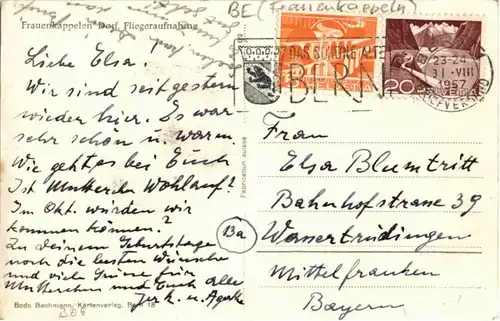 BE (Frauenkappeln)
Frauenkappelen Dorf. Fliegeraufnahme
DAS SCHÖNE ALTE
BERN
23-24
31.VIII
1957
20
Liebe Elsa!
Wir sind seit gestern
wieder hier. Es war
sehr schön u. warm.
Wie geht es bei Euch
Ist Mutterchen Wohlauf?
Im Okt. würden wir
kommen können?
Zu Deinem Geburtstage
noch die besten Wünsche
und viele Grüsse für
Mutterchen und Euch alle
Frau
Elsa Blumtritt
Bahnhofstrasse 39
13a
Wassertrüdingen
Mittelfranken
Bayern
Fabrication suisse
Bodo Bachmann, Kartenverlag, Bern 18